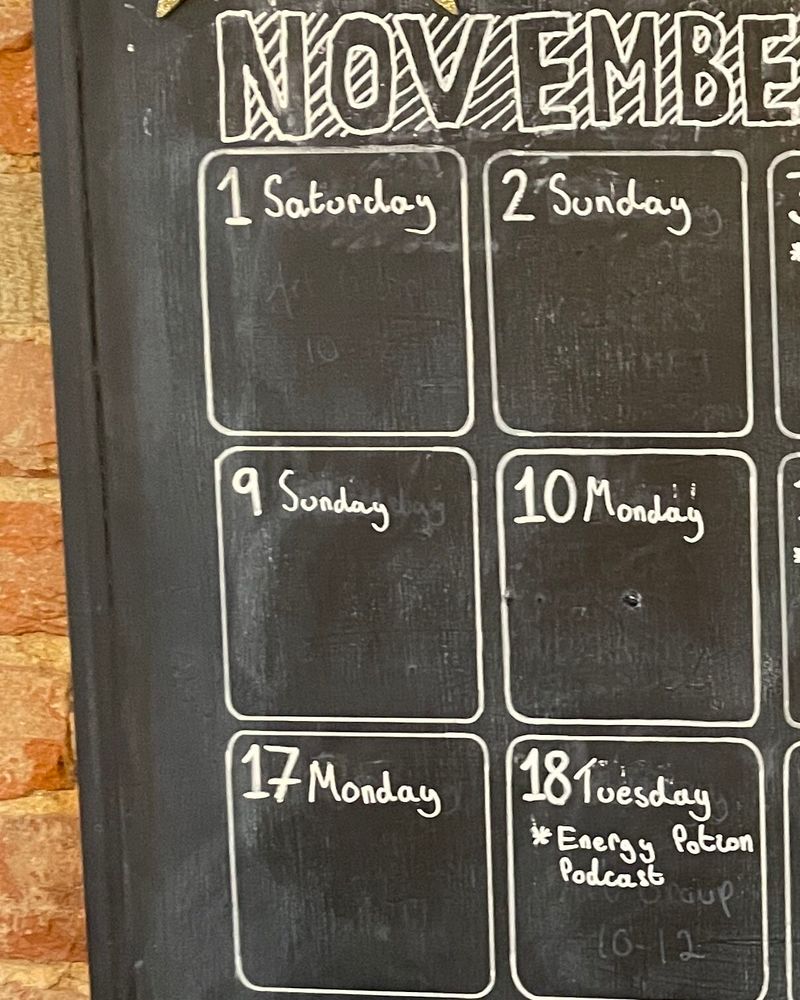 NOVEMBE
1 Saturday
2 Sunday
9 Sunday
10 Monday
17 Monday
18 Tuesday
* Energy Potion
Podcast
10-12